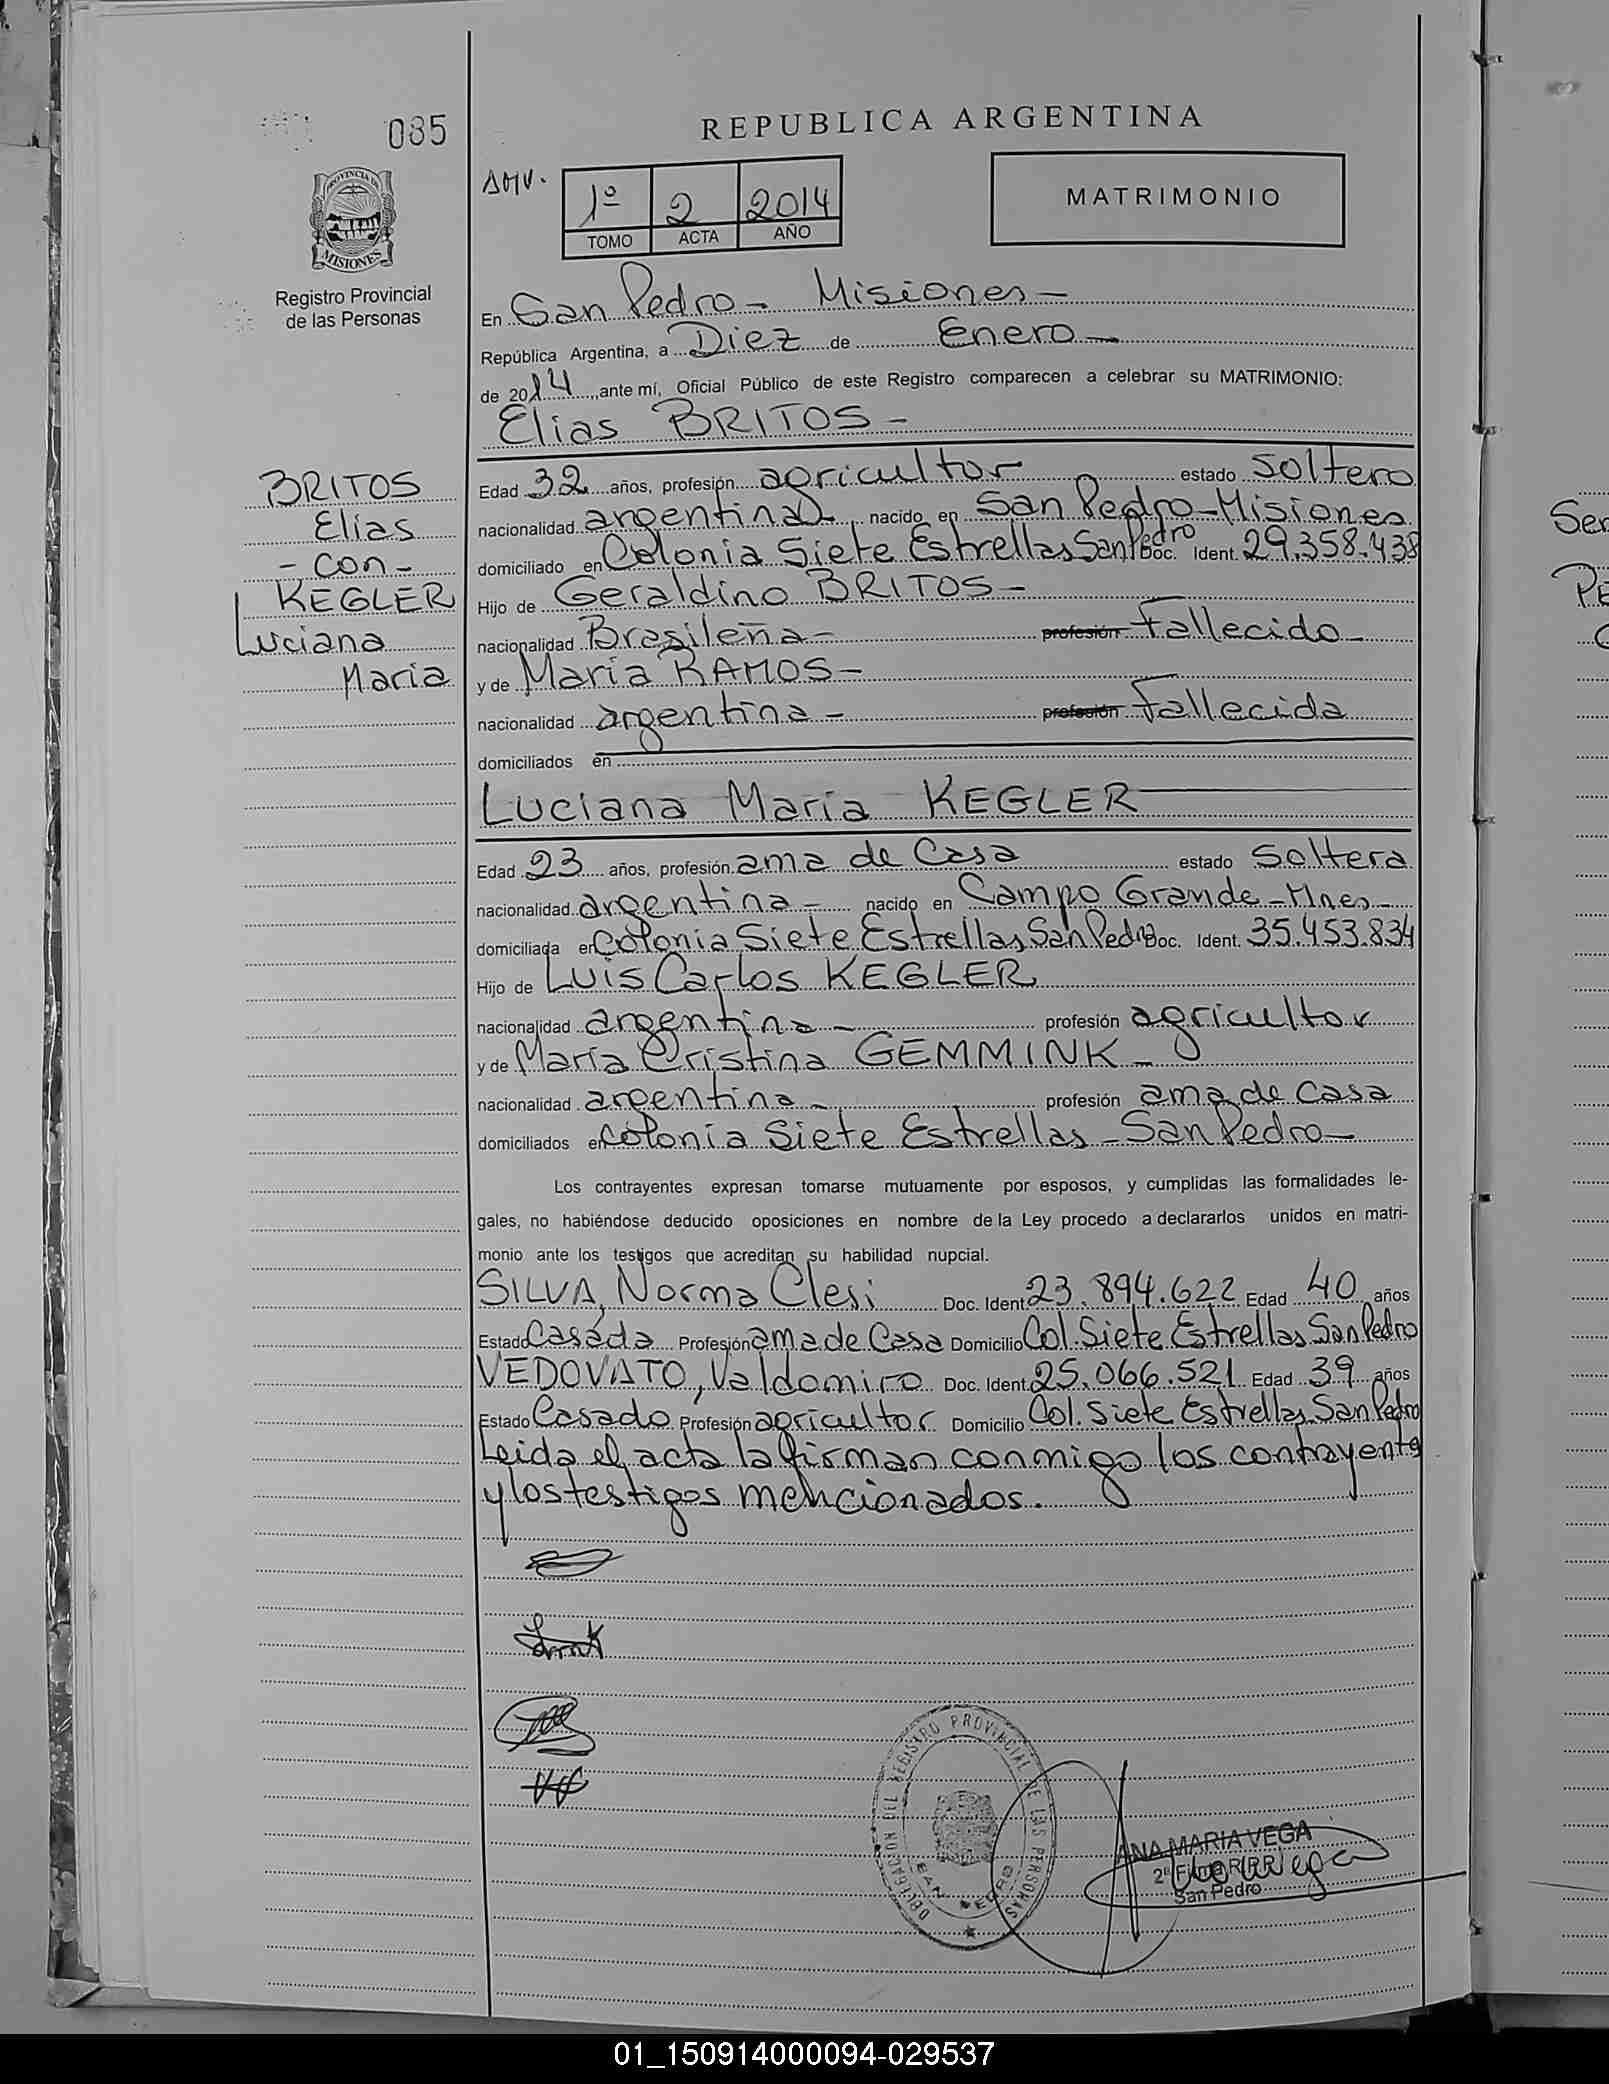 085
REPUBLICA ARGENTINA
1º 2 2014
TOMO ACTA AÑO
MATRIMONIO
PROVINCIA DE
MISIONES
Registro Provincial
de las Personas
En San Pedro - Misiones -
República Argentina, a Diez de Enero -
de 2014, ante mí, Oficial Público de este Registro comparecen a celebrar su MATRIMONIO:
Elias BRITOS -
BRITOS
Elias
- con -
KEGLER
Luciana
Maria
Edad 32 años, profesión agricultor estado soltero
nacionalidad argentina nacido en San Pedro - Misiones
domiciliado en Colonia Siete Estrellas San Pedro Doc. Ident. 29.358.438
Hijo de Geraldino BRITOS -
nacionalidad Brasileña - profesión Fallecido -
y de Maria RAMOS -
nacionalidad argentina - profesión Fallecida
domiciliados en
Luciana Maria KEGLER
Edad 23 años, profesión ama de Casa estado Soltera
nacionalidad argentina - nacido en Campo Grande - Mnes -
domiciliada en Colonia Siete Estrellas San Pedro Doc. Ident. 35.453.834
Hijo de Luis Carlos KEGLER
nacionalidad argentina - profesión agricultor
y de María Cristina GEMMINK -
nacionalidad argentina - profesión ama de Casa
domiciliados en Colonia Siete Estrellas - San Pedro -
Los contrayentes expresan tomarse mutuamente por esposos, y cumplidas las formalidades le-
gales, no habiéndose deducido oposiciones en nombre de la Ley procedo a declararlos unidos en matri-
monio ante los testigos que acreditan su habilidad nupcial.
SILVA, Norma Clesi Doc. Ident. 23.894.622 Edad 40 años
Estado Casada Profesión ama de Casa Domicilio Col. Siete Estrellas San Pedro
VEDOVATO, Valdomiro Doc. Ident. 25.066.521 Edad 39 años
Estado Casado Profesión agricultor Domicilio Col. Siete Estrellas San Pedro
Leida el acta la firman conmigo los contrayentes
y los testigos mencionados.
DELEGACION DEL REGISTRO PROVINCIAL DE LAS PERSONAS
SAN PEDRO
ANA MARIA VEGA
San Pedro
01_150914000094-029537